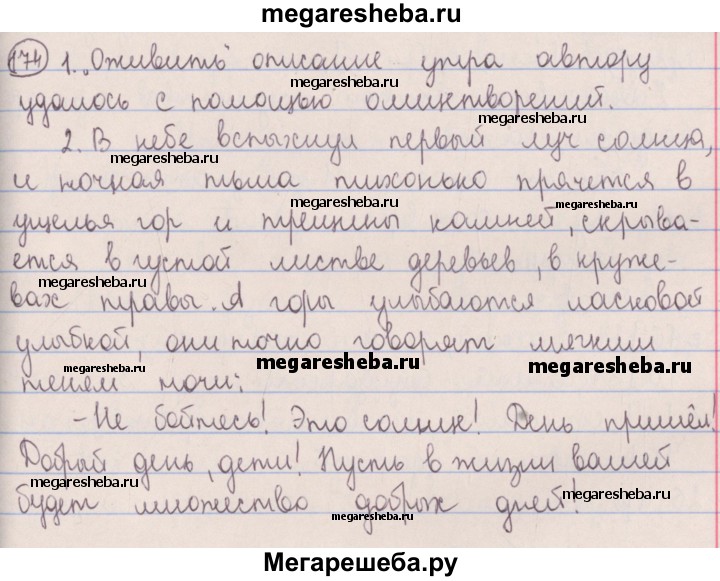 megaresheba.ru
174 1. „Оживить" описание утра автору
megaresheba.ru
удалось с помощью олицетворений.
megaresheba.ru
2. В небе вспыхнул первый луч солнца,
megaresheba.ru
megaresheba.ru
и ночная тьма тихонько прячется в
megaresheba.ru
megaresheba.ru
ущелья гор и трещины камней, скрыва-
ется в густой листве деревьев, в круже-
megaresheba.ru
вах травы. А горы улыбаются ласковой
улыбкой, они точно говорят мягким
megaresheba.ru
megaresheba.ru
megaresheba.ru
теням ночи:
- Не бойтесь! Это солнце! День пришёл!
megaresheba.ru
Добрый день, дети! Пусть в жизни вашей
megaresheba.ru
будет множество добрых дней!
megaresheba.ru
Мегарешеба.ру